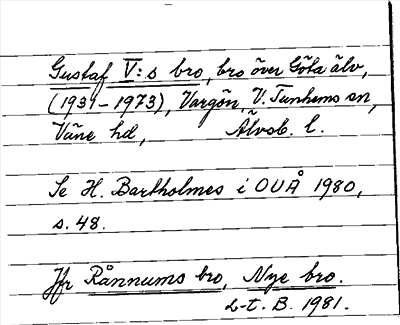 Gustaf V:s bro, bro över Göta älv,
(1937-1973), Vargön, V. Tunhems sn,
Väne hd, Älvsb. l.
Se H. Bartholmes i OUÅ 1980,
s. 48.
Jfr Rånnums bro, Nye bro.
L-t. B. 1981.